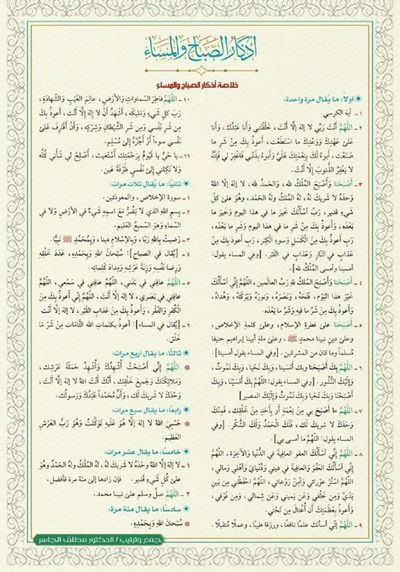 أذكار الصباح والمساء
خلاصة أذكار الصباح والمساء
أولاً: ما يقال مرة واحدة:
١- آية الكرسي.
٢- اللَّهُمَّ أَنْتَ رَبِّي لا إِلَهَ إِلَّا أَنْتَ، خَلَقْتَنِي وَأَنَا عَبْدُكَ، وَأَنَا
عَلَى عَهْدِكَ وَوَعْدِكَ مَا اسْتَطَعْتُ، أَعُوذُ بِكَ مِنْ شَرِّ مَا
صَنَعْتُ، أَبُوءُ لَكَ بِنِعْمَتِكَ عَلَيَّ وَأَبُوءُ بِذَنْبِي فَاغْفِرْ لِي فَإِنَّهُ
لا يَغْفِرُ الذُّنُوبَ إِلَّا أَنْتَ.
٣- أَصْبَحْنَا وَأَصْبَحَ المُلْكُ للهِ، وَالحَمْدُ للهِ، لا إِلَهَ إِلَّا اللهُ
وَحْدَهُ لا شَرِيكَ لَهُ، لَهُ المُلْكُ وَلَهُ الحَمْدُ، وَهُوَ عَلَى كُلِّ
شَيْءٍ قَدِير، رَبِّ أَسْأَلُكَ خَيْرَ مَا فِي هَذَا اليَوْمِ وَخَيْرَ مَا
بَعْدَهُ، وَأَعُوذُ بِكَ مِنْ شَرِّ مَا فِي هَذَا اليَوْمِ وَشَرِّ مَا بَعْدَهُ،
رَبِّ أَعُوذُ بِكَ مِنَ الكَسَلِ وَسُوءِ الكِبَرِ، رَبِّ أَعُوذُ بِكَ مِنْ
عَذَابٍ فِي النَّارِ وَعَذَابٍ فِي القَبْرِ. [وفي المساء يقول:
أمسينا وأمسى المُلْكُ لله].
٤- أَصْبَحْنَا وَأَصْبَحَ المُلْكُ للهِ رَبِّ العَالَمِينَ، اللَّهُمَّ إِنِّي أَسْأَلُكَ
خَيْرَ هَذَا اليَوْمِ، فَتْحَهُ، وَنَصْرَهُ، وَنُورَهُ وَبَرَكَتَهُ، وَهُدَاهُ،
وَأَعُوذُ بِكَ مِنْ شَرِّ مَا فِيهِ وَشَرِّ مَا بَعْدَهُ.
٥- أَصْبَحْنَا عَلَى فطرةِ الإسلامِ، وعلى كلمةِ الإخلاصِ،
وعلى دينِ نبينا محمدٍ ﷺ، وعلى ملةِ أبينا إبراهيمَ حنيفاً
مسلماً وما كان من المشركين. [وفي المساء يقول: أمسينا].
٦- اللَّهُمَّ بِكَ أَصْبَحْنَا وَبِكَ أَمْسَيْنَا، وَبِكَ نَحْيَا وَبِكَ نَمُوتُ،
وَإِلَيْكَ النُّشُور. [وفي المساء يقول: اللَّهُمَّ بِكَ أَمْسَيْنَا، وَبِكَ
أَصْبَحْنَا وَبِكَ نَحْيَا وَبِكَ نَمُوتُ وَإِلَيْكَ المَصير]
٧- اللَّهُمَّ مَا أَصْبَحَ بِي مِنْ نِعْمَةٍ أَو بِأَحَدٍ مِنْ خَلْقِكَ، فَمِنْكَ
وَحْدَكَ لا شَرِيكَ لَكَ، فَلَكَ الحَمْدُ وَلَكَ الشُّكْرُ. [وفي
المساء يقول: اللَّهُمَّ ما أمسى بي].
٨- اللَّهُمَّ إِنِّي أَسْأَلُكَ العفو العافيةَ فِي الدُّنْيَا وَالآخِرَةِ، اللَّهُمَّ
إِنِّي أَسْأَلُكَ العفو والعافيةَ في ديني وَدُنْيَايَ وَأَهْلِي ومالي،
اللَّهُمَّ اسْتُرْ عَوْرَاتِي وَآمِنْ رَوْعَاتِي، اللَّهُمَّ احْفَظْنِي مِنْ بَيْنِ
يَدَيَّ وَمِنْ خَلْفِي وَعَنْ يَمِينِي وَعَنْ شِمَالِي، وَمِنْ فَوْقِي،
وَأَعُوذُ بِعَظَمَتِكَ أَنْ أُغْتَالَ مِنْ تَحْتِي.
٩- اللَّهُمَّ إِنِّي أَسألكَ علماً نافعاً، ورزقاً طيباً، وعملاً مُتقبلاً.
١٠- اللَّهُمَّ فَاطِرَ السَّمَاوَاتِ وَالأَرْضِ، عَالِمَ الغَيْبِ وَالشَّهَادَةِ،
رَبَّ كُلِّ شَيْءٍ وَمَلِيكَهُ، أَشْهَدُ أَنْ لا إِلَهَ إِلَّا أَنْتَ، أَعُوذُ بِكَ
مِنْ شَرِّ نَفْسِي وَمِنْ شَرِّ الشَّيْطَانِ وَشِرْكِهِ، وَأَنْ أَقْتَرِفَ عَلَى
نَفْسِي سُوءًا أَوْ أَجُرَّهُ إِلَى مُسْلِمٍ.
١١- يا حَيُّ يا قَيُّومُ بِرَحْمَتِكَ أَسْتَغِيثُ، أَصْلِحْ لِي شَأْنِي كُلَّهُ
وَلا تَكِلْنِي إِلَى نَفْسِي طَرْفَةَ عَيْنٍ.
ثانياً: ما يقال ثلاث مرات:
١- سورة الإخلاص، والمعوذتين.
٢- بِسْمِ اللهِ الَّذِي لا يَضُرُّ مَعَ اسْمِهِ شَيْءٌ فِي الأَرْضِ وَلا فِي
السَّمَاءِ وَهُوَ السَّمِيعُ العَلِيم.
٣- رَضِيتُ بِاللهِ رَبّاً، وَبِالإِسْلامِ دِيناً، وَبِمُحَمَّدٍ ﷺ نَبِيًّا.
٤- [يقال في الصباح]: سُبْحَانَ اللهِ وَبِحَمْدِهِ، عَدَدَ خَلْقِهِ
وَرِضَا نَفْسِهِ وَزِنَةَ عَرْشِهِ وَمِدَادَ كَلِمَاتِهِ.
٥- اللَّهُمَّ عَافِنِي فِي بَدَنِي، اللَّهُمَّ عَافِنِي فِي سَمْعِي، اللَّهُمَّ
عَافِنِي فِي بَصَرِي، لا إِلَهَ إِلَّا أَنْتَ، اللَّهُمَّ إِنِّي أَعُوذُ بِكَ مِنَ
الكُفْرِ وَالفَقْرِ، وَأَعُوذُ بِكَ مِنْ عَذَابِ القَبْرِ، لا إِلَهَ إِلَّا أَنْتَ.
٦- [يقال في المساء]: أَعُوذُ بِكَلِمَاتِ اللهِ التَّامَّاتِ مِنْ شَرِّ مَا
خَلَقَ.
ثالثاً: ما يقال أربع مرات:
اللَّهُمَّ إِنِّي أَصْبَحْتُ أُشْهِدُكَ وَأُشْهِدُ حَمَلَةَ عَرْشِكَ،
وَمَلائِكَتَكَ وَجَمِيعَ خَلْقِكَ، أَنَّكَ أَنْتَ اللهُ لا إِلَهَ إِلَّا أَنْتَ،
وَحْدَكَ لا شَرِيكَ لَكَ، وَأَنَّ مُحَمَّداً عَبْدُكَ وَرَسُولُكَ.
رابعاً: ما يقال سبع مرات:
حَسْبِيَ اللهُ لا إِلَهَ إِلَّا هُوَ عَلَيْهِ تَوَكَّلْتُ وَهُوَ رَبُّ العَرْشِ
العَظِيمِ.
خامساً: ما يقال عشر مرات:
١- لا إِلَهَ إِلَّا اللهُ وَحْدَهُ لا شَرِيكَ لَهُ، لَهُ المُلْكُ وَلَهُ الحَمْدُ وَهُوَ
عَلَى كُلِّ شَيْءٍ قَدِير. فإن زادها إلى مئة مرة فأفضل.
٢- اللَّهُمَّ صلِّ وسلم على نبينا محمد.
سادساً: ما يقال مئة مرة:
سُبْحَانَ اللهِ وَبِحَمْدِهِ.
جمع وترتيب / الدكتور مطلق الجاسر